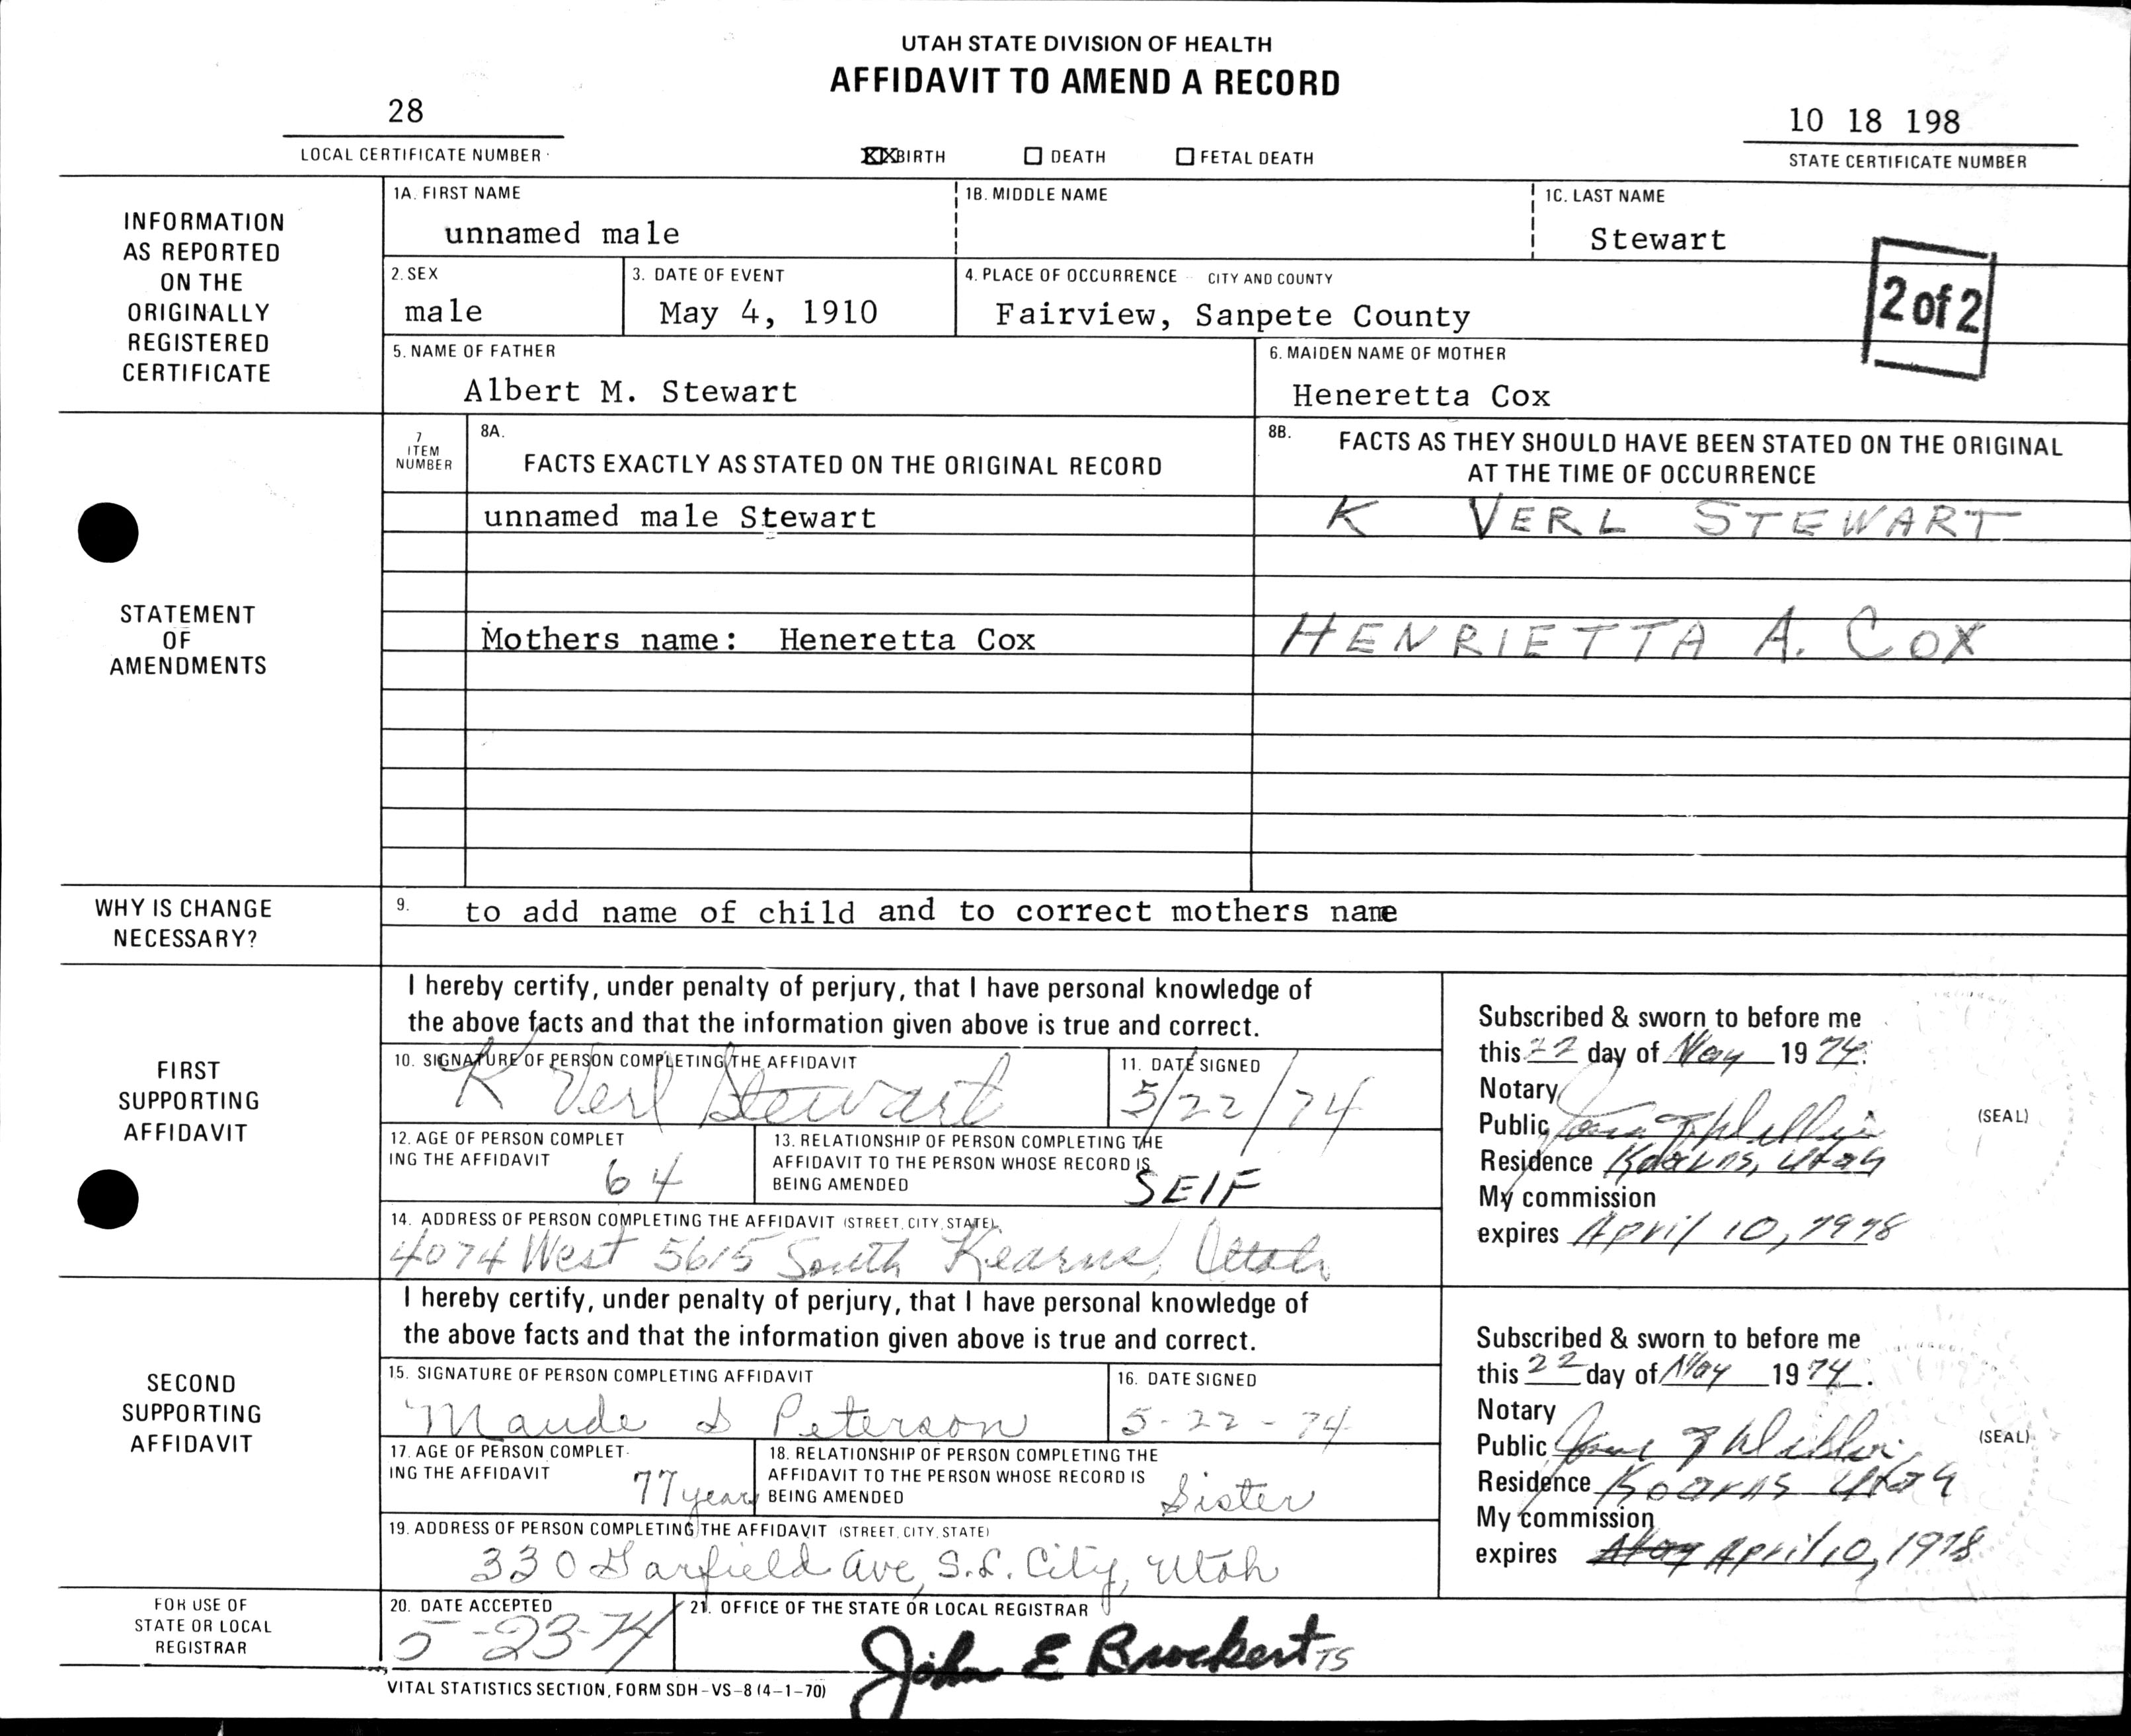 UTAH STATE DIVISION OF HEALTH
AFFIDAVIT TO AMEND A RECORD
28
LOCAL CERTIFICATE NUMBER
XX BIRTH
DEATH
FETAL DEATH
10 18 198
STATE CERTIFICATE NUMBER
INFORMATION
AS REPORTED
ON THE
ORIGINALLY
REGISTERED
CERTIFICATE
1A. FIRST NAME
unnamed male
1B. MIDDLE NAME
1C. LAST NAME
Stewart
2. SEX
male
3. DATE OF EVENT
May 4, 1910
4. PLACE OF OCCURRENCE CITY AND COUNTY
Fairview, Sanpete County
2 of 2
5. NAME OF FATHER
Albert M. Stewart
6. MAIDEN NAME OF MOTHER
Heneretta Cox
STATEMENT
OF
AMENDMENTS
7
ITEM
NUMBER
8A.
FACTS EXACTLY AS STATED ON THE ORIGINAL RECORD
8B. FACTS AS THEY SHOULD HAVE BEEN STATED ON THE ORIGINAL
AT THE TIME OF OCCURRENCE
unnamed male Stewart
K VERL STEWART
Mothers name: Heneretta Cox
HENRIETTA A. COX
WHY IS CHANGE
NECESSARY?
9. to add name of child and to correct mothers name
FIRST
SUPPORTING
AFFIDAVIT
I hereby certify, under penalty of perjury, that I have personal knowledge of
the above facts and that the information given above is true and correct.
10. SIGNATURE OF PERSON COMPLETING THE AFFIDAVIT
K Verl Stewart
11. DATE SIGNED
5/22/74
12. AGE OF PERSON COMPLET
ING THE AFFIDAVIT
64
13. RELATIONSHIP OF PERSON COMPLETING THE
AFFIDAVIT TO THE PERSON WHOSE RECORD IS
BEING AMENDED
SELF
14. ADDRESS OF PERSON COMPLETING THE AFFIDAVIT (STREET, CITY, STATE)
4074 West 5615 South Kearns, Utah
Subscribed & sworn to before me
this 22 day of May 1974.
Notary
Public
Residence Kearns, Utah
My commission
expires April 10, 1978
(SEAL)
SECOND
SUPPORTING
AFFIDAVIT
I hereby certify, under penalty of perjury, that I have personal knowledge of
the above facts and that the information given above is true and correct.
15. SIGNATURE OF PERSON COMPLETING AFFIDAVIT
Maude S Peterson
16. DATE SIGNED
5-22-74
17. AGE OF PERSON COMPLET-
ING THE AFFIDAVIT
77 years
18. RELATIONSHIP OF PERSON COMPLETING THE
AFFIDAVIT TO THE PERSON WHOSE RECORD IS
BEING AMENDED
Sister
19. ADDRESS OF PERSON COMPLETING THE AFFIDAVIT (STREET, CITY, STATE)
330 Garfield Ave, S.L. City, Utah
Subscribed & sworn to before me
this 22 day of May 1974.
Notary
Public
Residence Kearns Utah
My commission
expires May April 10, 1978
(SEAL)
FOR USE OF
STATE OR LOCAL
REGISTRAR
20. DATE ACCEPTED
5-23-74
21. OFFICE OF THE STATE OR LOCAL REGISTRAR
John E Brockert TS
VITAL STATISTICS SECTION, FORM SDH-VS-8 (4-1-70)